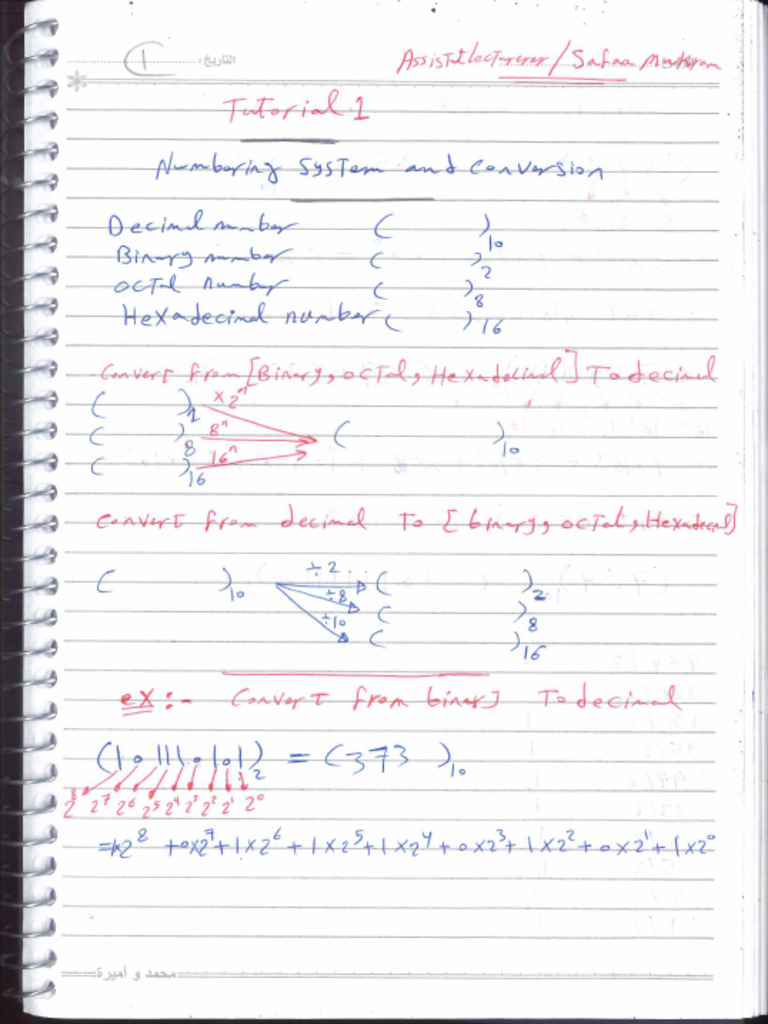 1 التاريخ:
Assistlecturerer / Safaa
Tutorial 1
Numbering System and Conversion
Decimal number ( )10
Binary number ( )2
octal number ( )8
Hexadecimal number ( )16
Convert from [Binary, octal, Hexadecimal] To decimal
( )2 ×2ⁿ
( )8 8ⁿ ( )10
( )16 16ⁿ
Convert from decimal To [binary, octal, Hexadecmal]
( )10 ÷2 ( )2
÷8 ( )8
÷10 ( )16
ex :- Convert from binary To decimal
(101110101)2 = (373 )10
2⁸ 2⁷ 2⁶ 2⁵ 2⁴ 2³ 2² 2¹ 2⁰
=1×2⁸ +0×2⁷+1×2⁶+1×2⁵+1×2⁴+0×2³+1×2²+0×2¹+1×2⁰
محمد و أميرة